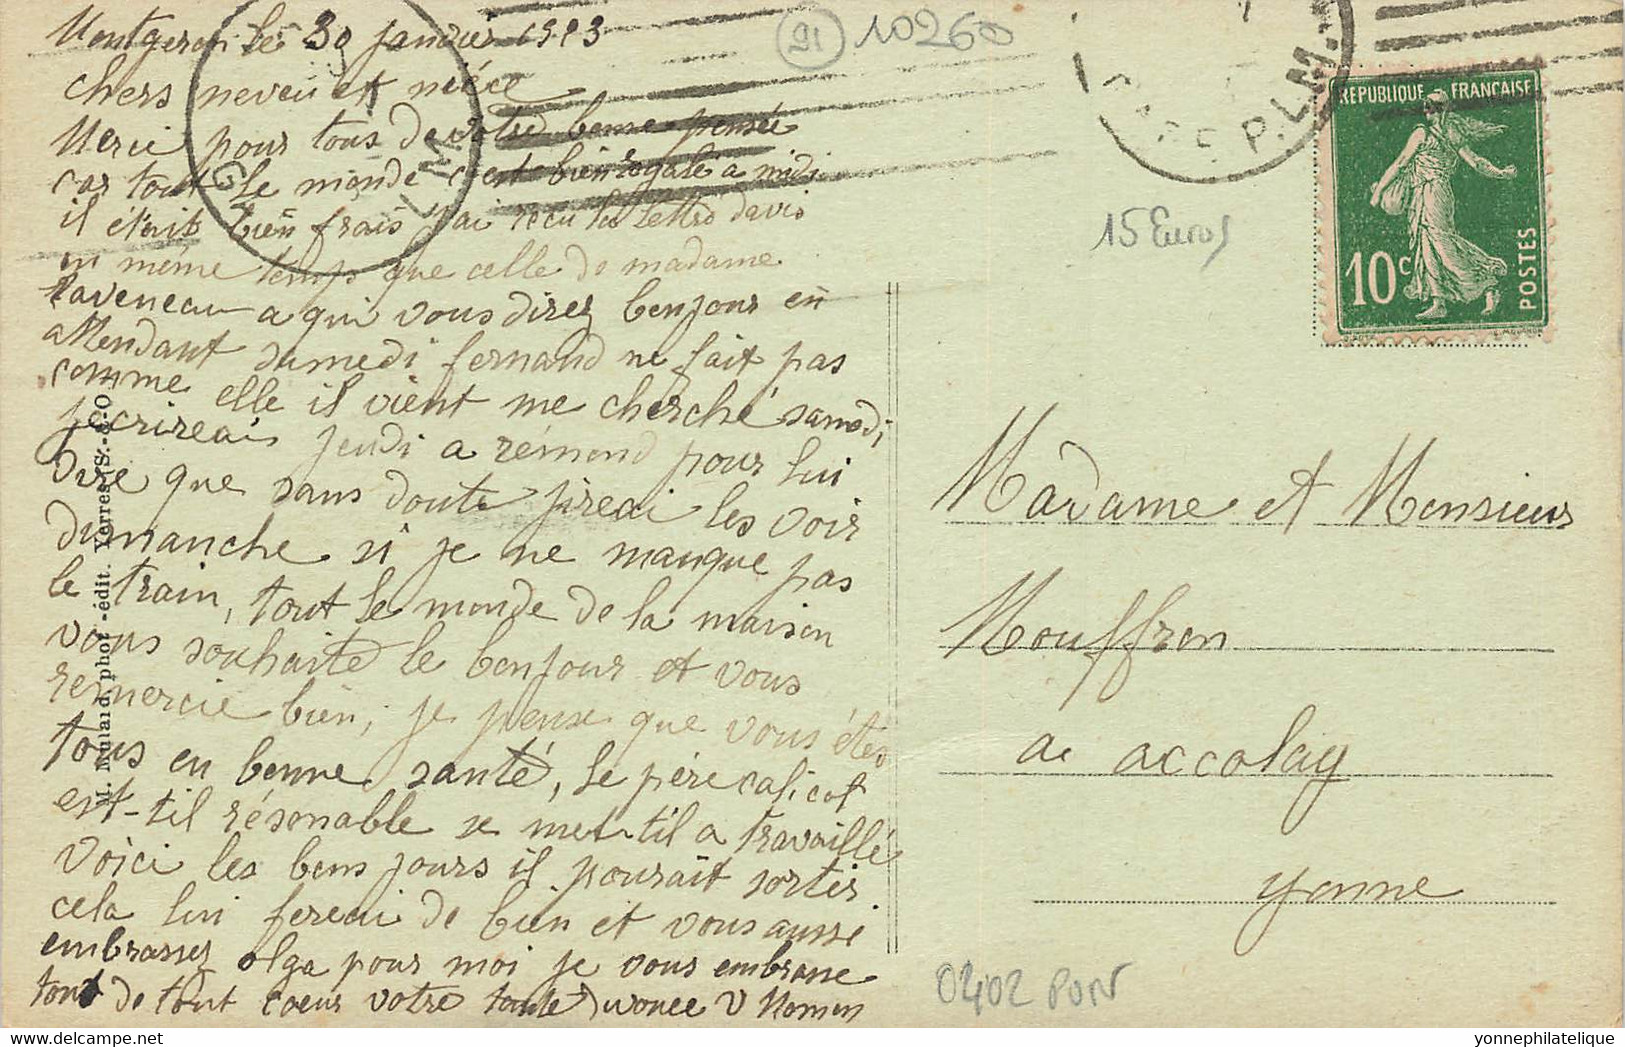 Montgeron le 30 janvier 1923
chers neveu et niéce
Merci pour tous de votre bonne pensée
car tout le monde c'est bien régalé a midi
il était bien frais j'ai reçu la lettre davis
en même temps que celle de madame
Taveneau a qui vous direz bonjour en
attendant samedi fernand ne fait pas
comme elle il vient me cherché samedi
j'ecrireais jeudi a rémond pour lui
dire que sans doute jireai les voir
dimanche si je ne manque pas
le train, tout le monde de la maison
vous souhaite le bonjour et vous
remercie bien, je pense que vous êtes
tous en bonne santé, le père calicot
est-til résonable se met-til a travaillé
voici les bons jours il pourait sortir
cela lui fereai de bien et vous aussi
embrassez olga pour moi je vous embrasse
tout de tout coeur votre tante
M. Mulard, phot-édit. Yerres (S.-&-O.)
91 10260
GARE P.L.M.
15 Euros
REPUBLIQUE FRANÇAISE
10c
POSTES
Madame et Monsieur
Mouffron
a accolay
yonne
0402 PON
yonnephilatelique